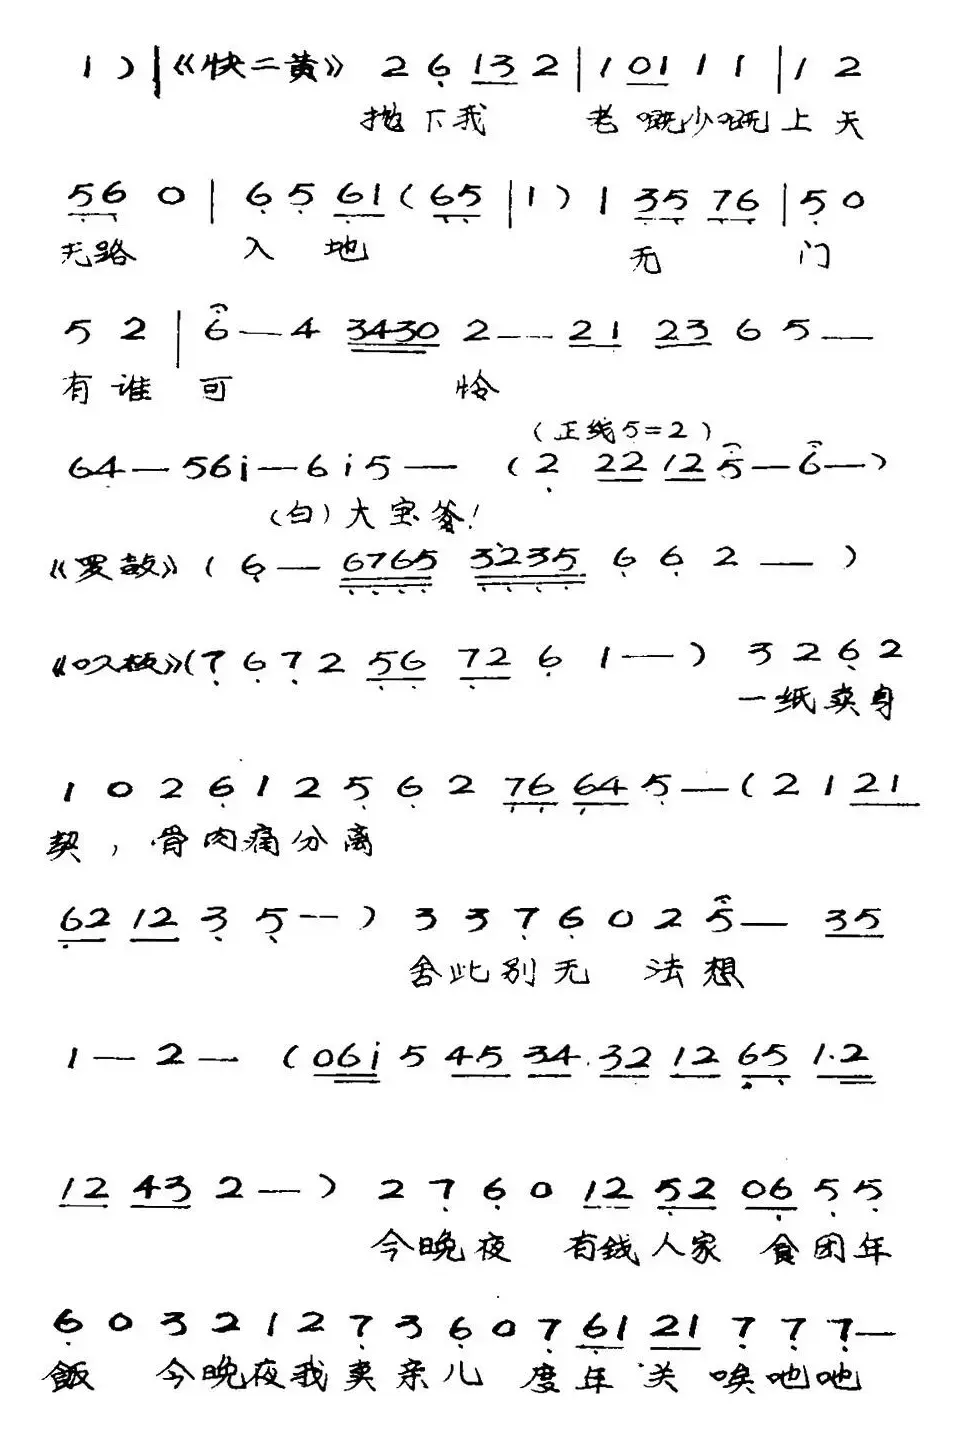 1 ) | 《快二黄》 2 6 13 2 | 1 01 1 1 | 1 2
抛下我 老嘅少嘅上天
56 0 | 6 5 61 ( 65 | 1 ) 1 35 76 | 5 0
无路 入地 无 门
5 2 | 6 — 4 3430 2 — — 21 23 6 5 —
有谁可 怜
(正线5=2)
64 — 56i — 6 i 5 — ( 2 22 12 5 — 6 — )
(白)大宝爹!
《罗鼓》 ( 6 — 6765 3235 6 6 2 — )
《叹板》 ( 7 6 7 2 56 72 6 1 — ) 3 2 6 2
一纸卖身
1 0 2 6 1 2 5 6 2 76 64 5 — ( 2 1 21
契,骨肉痛分离
62 12 3 5 - - ) 3 3 7 6 0 2 5 — 35
舍此别无 法想
1 — 2 — ( 06i 5 45 34. 32 12 65 1.2
12 43 2 — ) 2 7 6 0 12 52 06 5 5
今晚夜 有钱人家 食团年
6 0 3 2 1 2 7 3 6 0 7 61 21 7 7 7 —
飯 今晚夜我卖亲儿 度年关 唉吔吔